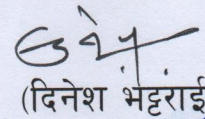 (दिनेश भट्टराई